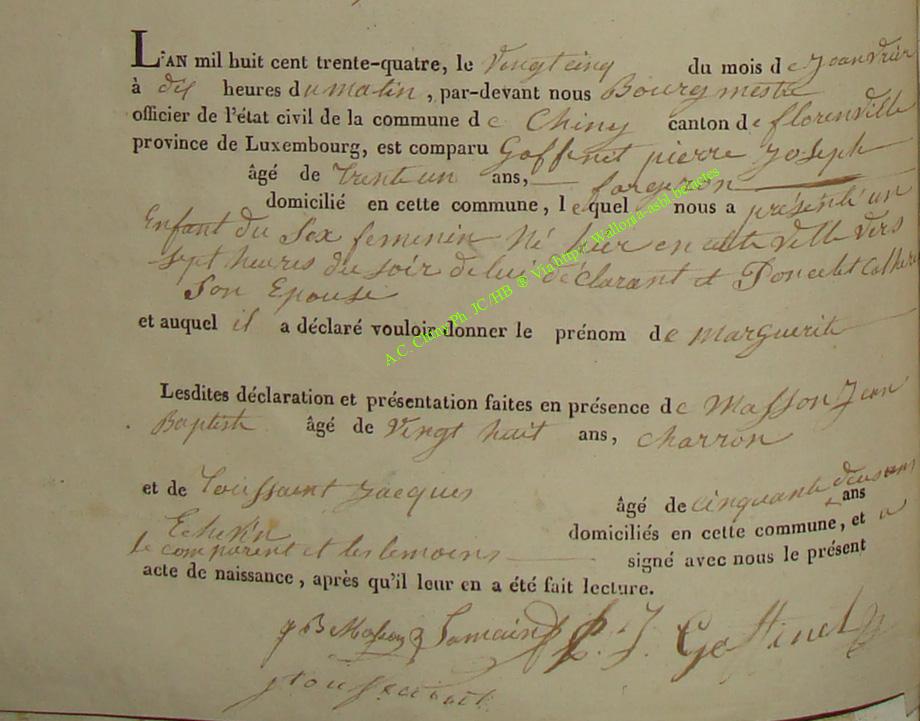 L'AN mil huit cent trente-quatre, le Vingt cinq du mois de Jeanvrier
à dix heures du matin, par-devant nous Bourgmestre
officier de l'état civil de la commune de Chiny canton de florenville
province de Luxembourg, est comparu Goffinet pierre Joseph
âgé de trente un ans, forgeron
domicilié en cette commune, lequel nous a présenté un
Enfant du Sex feminin Né hier en cette ville vers
sept heures du soir de lui déclarant et Poncelet Catherine
Son Epouse
et auquel il a déclaré vouloir donner le prénom de Marguerite
Lesdites déclaration et présentation faites en présence de Masson Jean
Baptiste âgé de Vingt huit ans, charron
et de Toussaint Jacques âgé de cinquante deus ans
Echevin domiciliés en cette commune, et a
le comparent et les temoins signé avec nous le présent
acte de naissance, après qu'il leur en a été fait lecture.
J B Masson P. J. Goffinet
J toussaint
A.C. Chiny Ph. JC/HB ® Via http:// Wallonia-asbl be/actes